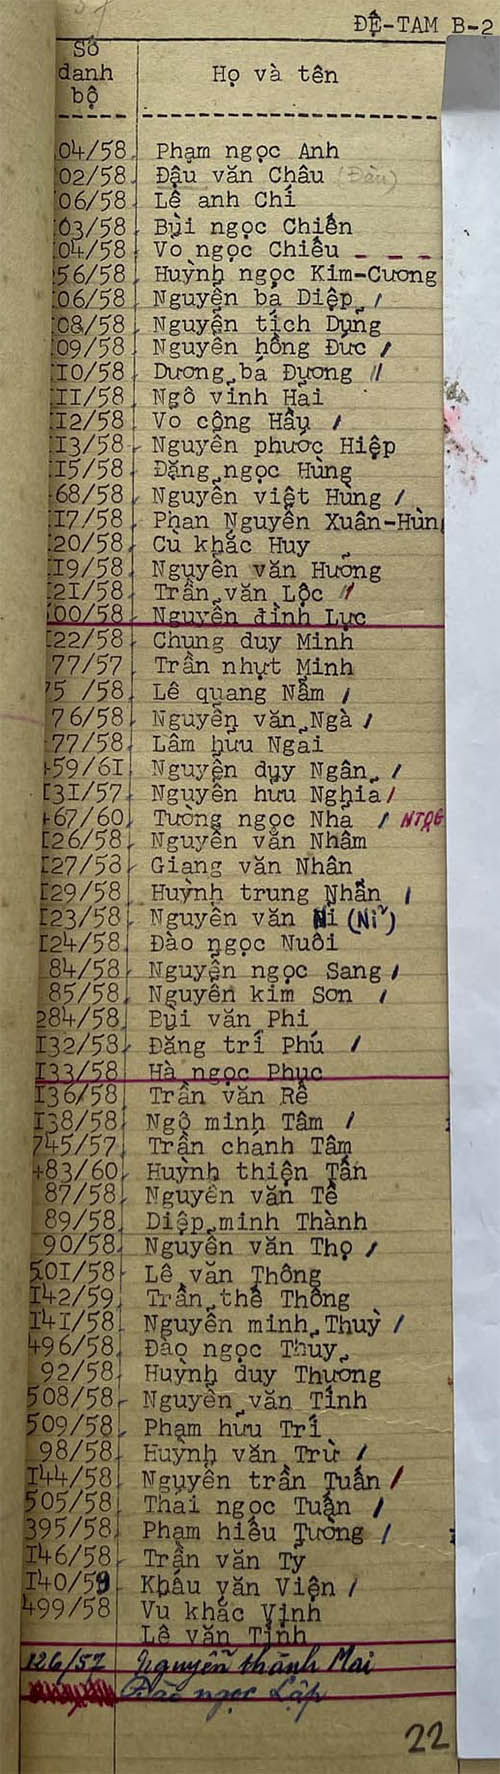 ĐỆ-TAM B-2
Số
danh
bộ
Họ và tên
04/58 Phạm ngọc Anh
02/58 Đậu văn Châu (Đàu)
06/58 Lê anh Chí
03/58 Bùi ngọc Chiến
04/58 Vo ngọc Chiêu
56/58 Huỳnh ngọc Kim-Cương
06/58 Nguyễn bá Diệp
08/58 Nguyễn tích Dụng
I09/58 Nguyễn hồng Đức
II0/58 Dương bá Đương
III/58 Ngô vinh Hai
II2/58 Vo công Hầu
II3/58 Nguyễn phước Hiệp
II5/58 Đặng ngọc Hùng
68/58 Nguyễn việt Hùng
I7/58 Phan Nguyễn Xuân-Hùn
I20/58 Cù khắc Huy
I19/58 Nguyễn văn Hưỡng
I2I/58 Trần văn Lộc
500/58 Nguyễn đình Lực
I22/58 Chung duy Minh
77/57 Trần nhựt Minh
75 /58 Lê quang Nẫm
76/58 Nguyễn văn Ngà
77/58 Lâm hữu Ngai
459/6I Nguyễn duy Ngân
I3I/57 Nguyễn hữu Nghia
467/60 Tường ngọc Nhã NTQG
I26/58 Nguyễn văn Nhâm
I27/58 Giang văn Nhân
I29/58 Huỳnh trung Nhẫn
I23/58 Nguyễn văn Ni (Nỉ)
I24/58 Đào ngọc Nuôi
84/58 Nguyễn ngọc Sang
85/58 Nguyễn kim Sơn
284/58 Bùi văn Phi
I32/58 Đăng trí Phú
I33/58 Hà ngọc Phục
I36/58 Trần văn Rê
I38/58 Ngô minh Tâm
745/57 Trần chánh Tâm
483/60 Huỳnh thiện Tấn
87/58 Nguyễn văn Tề
89/58 Diệp minh Thành
90/58 Nguyễn văn Thọ
50I/58 Lê văn Thông
I42/59 Trần thế Thông
I4I/58 Nguyễn minh Thuỳ
496/58 Đào ngọc Thuy
92/58 Huỳnh duy Thương
508/58 Nguyễn văn Tính
509/58 Phạm hữu Trí
98/58 Huỳnh văn Trừ
I44/58 Nguyễn trần Tuấn
505/58 Thái ngọc Tuấn
395/58 Phạm hiếu Tường
I46/58 Trần văn Tỷ
I40/59 Khấu văn Viện
499/58 Vu khắc Vịnh
Lê văn Tịnh
126/57 Nguyễn thành Mai
Đào ngọc Lập
22